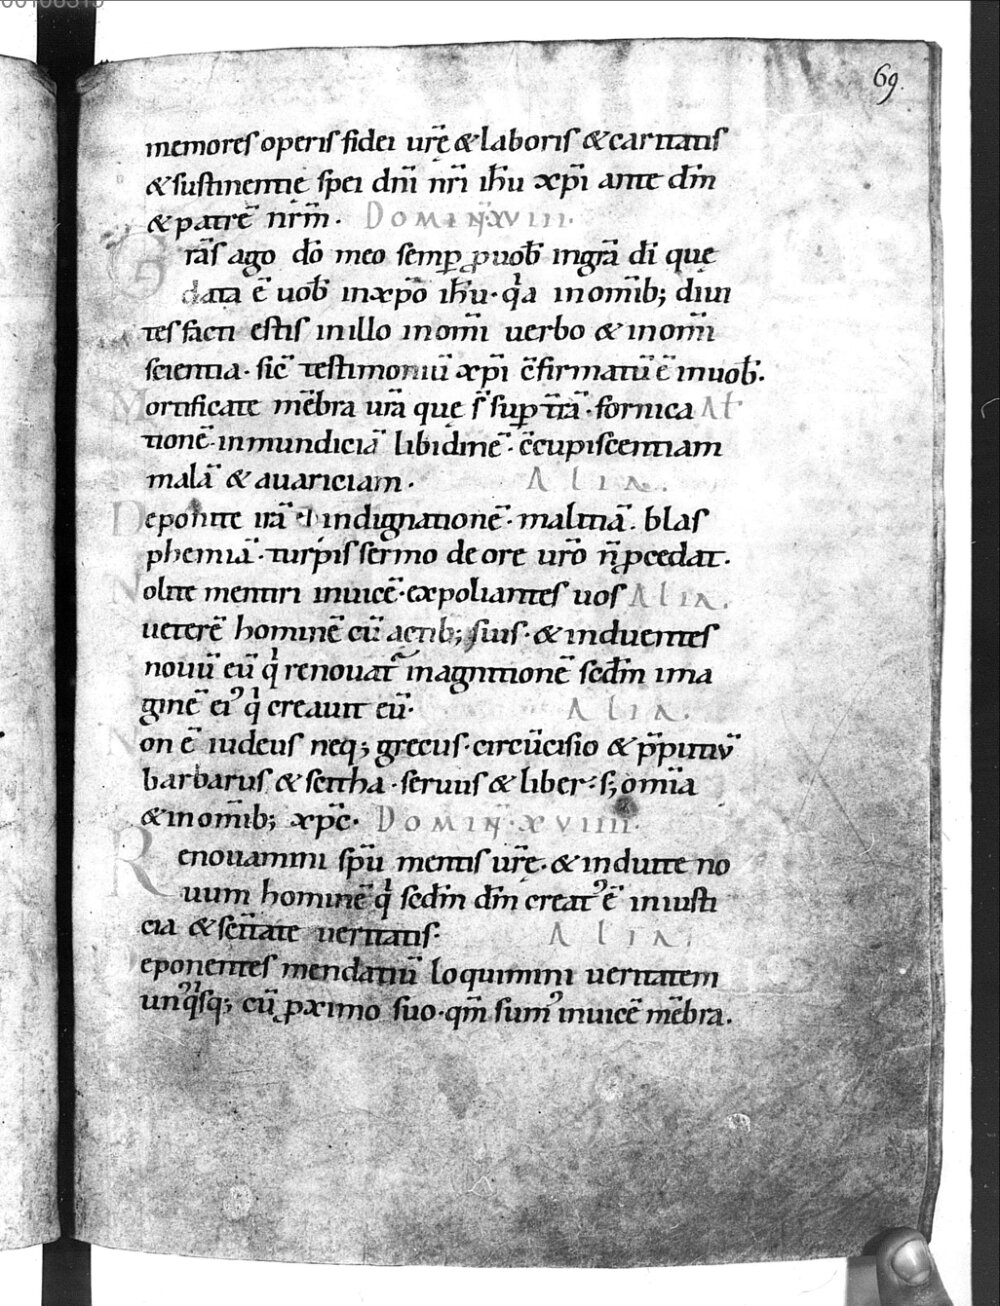 69.
memores operis fidei ur̄ę & laboris & caritatis
& sustinentię spei dn̄i nr̄i ih̄u xp̄i ante dm̄
& patrē nrm̄. DOMIN̄·XVIII·
Grās ago dō meo semꝑ ꝓ uob̄ in grā dī quę
data ē uob̄ in xp̄o ih̄u· qͥa in om̄ib; diui
tes facti estis in illo in om̄i uerbo & in om̄i
scientia· sic̄ testimoniū xp̄i c̄firmatū ē in uob̄.
Mortificate mēbra urā quę s̄ suꝑ tr̄ā· fornica Al̄
tionē· inmundiciā libidinē· c̄cupiscentiam
malā & auariciam· ALIA.
Deponite irā indignationē· malitiā. blas
phemiā· turpis sermo de ore urō n̄ ꝓcedat·
Nolite mentiri inuicē· expoliantes uos ALIA.
ueterē hominē cū actib; suis· & induentes
nouū eū qͥ renouat̃ in agnitionē scdm̄ ima
ginē ei᾿ qͥ creauit eū· ALIA.
Non ē iudeus neq; grecus· circūcisio & p̄putiū
barbarus & scitha· seruus & liber· s; om̄ia
& in om̄ib; xp̄c· DOMIN̄·XVIIII·
Renouamini sp̄u mentis ur̄ę· & induite no
uum hominē qͥ scdm̄ dm̄ creat᾿ ē in iusti
cia & sc̄itate ueritatis· ALIA.
Deponentes mendatiū loquimini ueritatem
unqͥsq; cū ꝓximo suo· qm̄ sum᾿ inuicē mēbra.